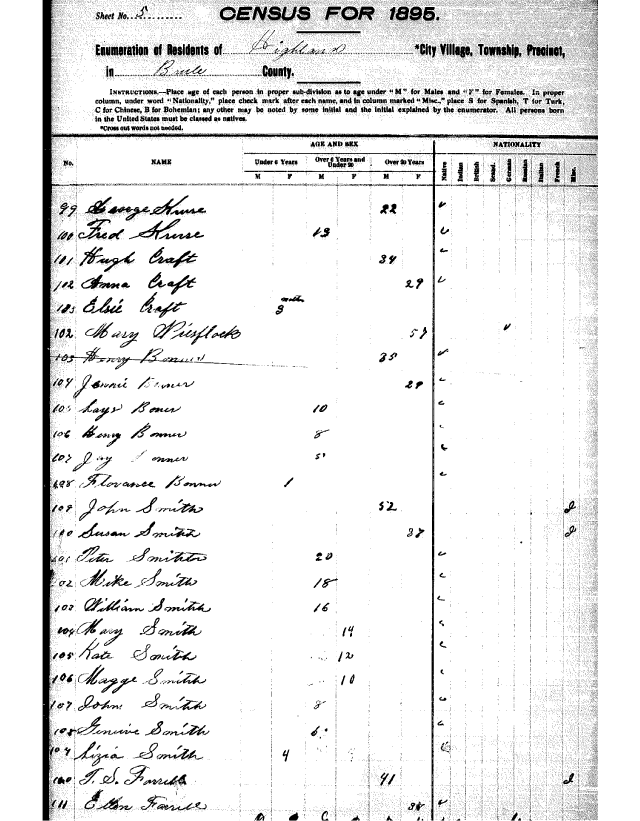 Sheet No. 5
CENSUS FOR 1895.
Enumeration of Residents of Highland *City Village, Township, Precinct,
in Brule County.
INSTRUCTIONS.—Place age of each person in proper sub-division as to age under "M" for Males and "F" for Females. In proper
column, under word "Nationality," place check mark after each name, and in column marked "Misc.," place S for Spanish, T for Turk,
C for Chinese, B for Bohemian; any other may be noted by some initial and the initial explained by the enumerator. All persons born
in the United States must be classed as natives.
*Cross out words not needed.
AGE AND SEX NATIONALITY
No. NAME Under 6 Years Over 6 Years and Under 20 Over 20 Years
M F M F M F Native Indian British Scand. German Russian Italian French Misc.
99 George Kruse 22 ✓
100 Fred Kruse 13 ✓
101 Hugh Craft 34 ✓
102 Anna Craft 29 ✓
103 Elsie Craft 3 months
102 Mary 57 ✓
103 Henry Bonner 35 ✓
104 Jennie Bonner 29 ✓
105 Lays Boner 10 ✓
106 Henry Bonner 8 ✓
107 Jay Bonner 5 ✓
108 Florance Bonner 1 ✓
109 John Smith 52 I
100 Susan Smith 37 I
101 Peter Smith 20 ✓
102 Mike Smith 18 ✓
103 William Smith 16 ✓
104 Mary Smith 14 ✓
105 Kate Smith 12 ✓
106 Magge Smith 10 ✓
107 John Smith 8 ✓
108 Genieve Smith 6 ✓
109 Lizia Smith 4
T. S. Farrell 41 I
111 Ellen Farrell 38 ✓